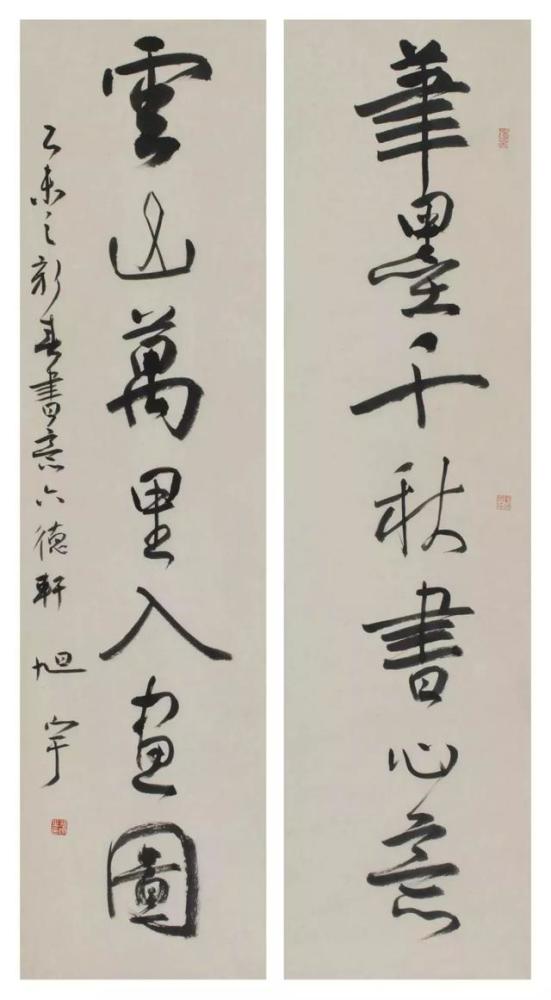 筆墨千秋書心意
雲山萬里入畫圖
乙未之新春書於六德軒
旭宇